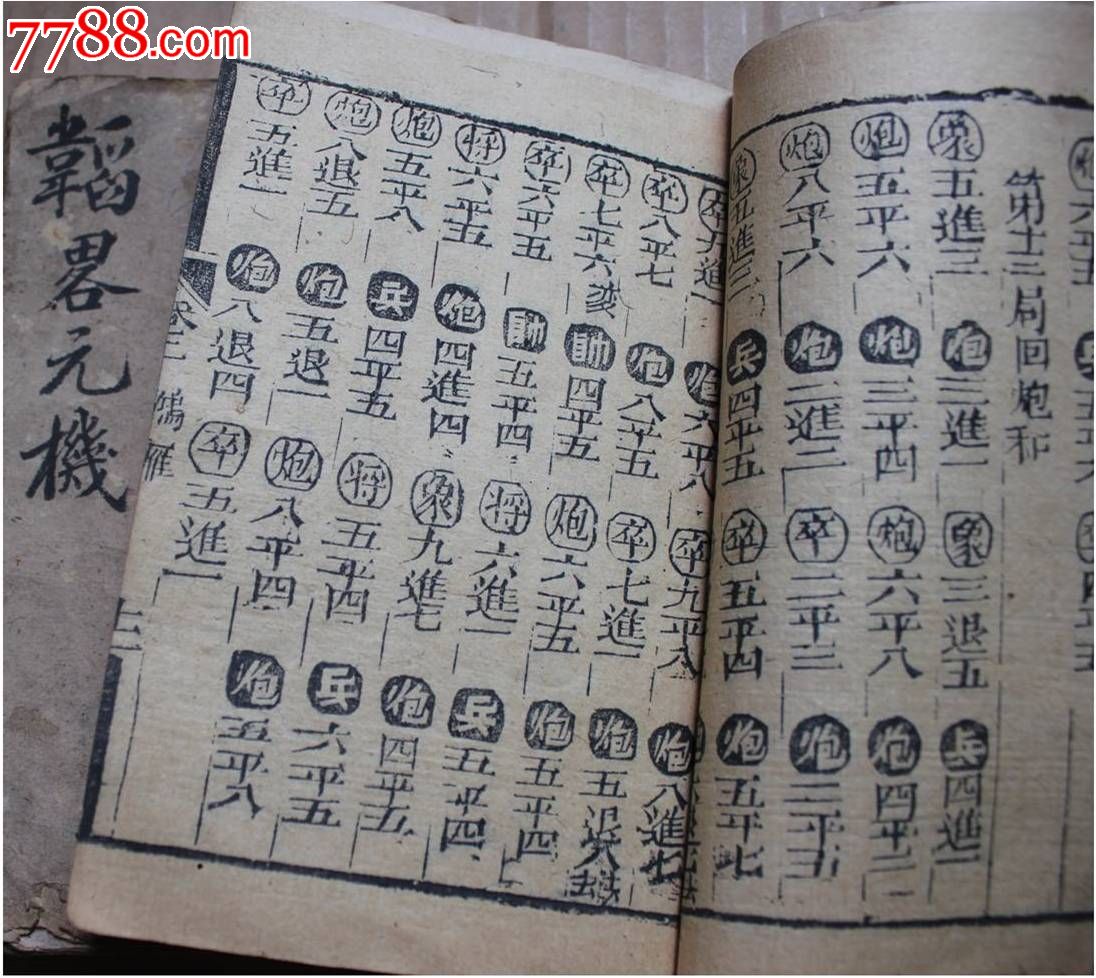 7788.com
象五進三 炮三進一 象三退五 兵四進一
第十三局回炮和
炮五平六 炮三平四 炮六平八 炮四平二
炮八平六 炮二進二 卒二平三 炮二平五
象五進三 兵四平五 卒五平四 炮五平七
卒九進一 炮六平八 卒九平八 炮八進七
卒八平七 炮八平五 卒七進一 炮五退
卒七平六変 帥四平五 炮六平五 炮五平四
卒六平五 帥五平四 将六進一 兵五平四
将六平五 炮四進四 象九進七 炮四平五
炮五平八 兵四平五 将五平四 兵六平五
炮八退五 炮五退一 炮八平四 炮五平八
卒五進一 炮八退四 卒五進一
卷三 鴻雁
韜畧元機